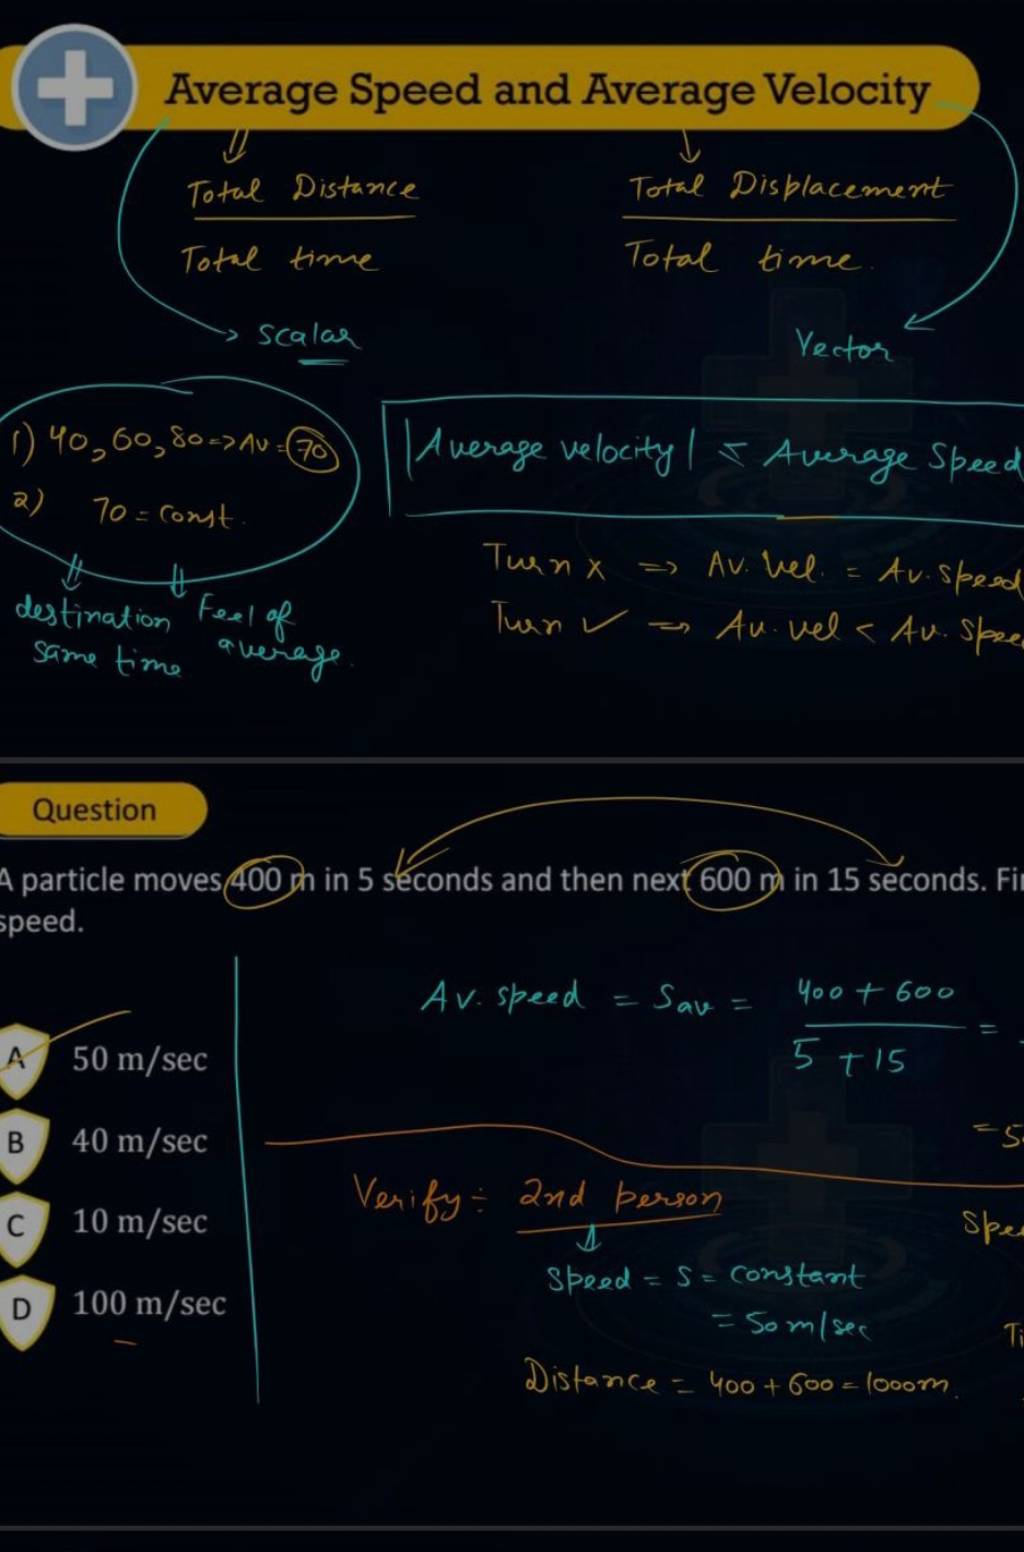 Average Speed and Average Velocity
Total Distance
Total time
Total Displacement
Total time.
scalar
Vector
1) 40, 60, 80 => Av = 70
2) 70 = const.
destination same time
Feel of average.
|Average velocity| ≤ Average Speed
Turn x => Av. Vel. = Av. Speed
Turn ✓ => Av. vel < Av.
Question
A particle moves 400 m in 5 seconds and then next 600 m in 15 seconds.
speed.
A 50 m/sec
B 40 m/sec
C 10 m/sec
D 100 m/sec
Av. speed = Sav = 400 + 600 =
5 + 15
Verify ÷ 2nd person
Speed = S = constant
= 50 m/sec
Distance = 400 + 600 = 1000m.